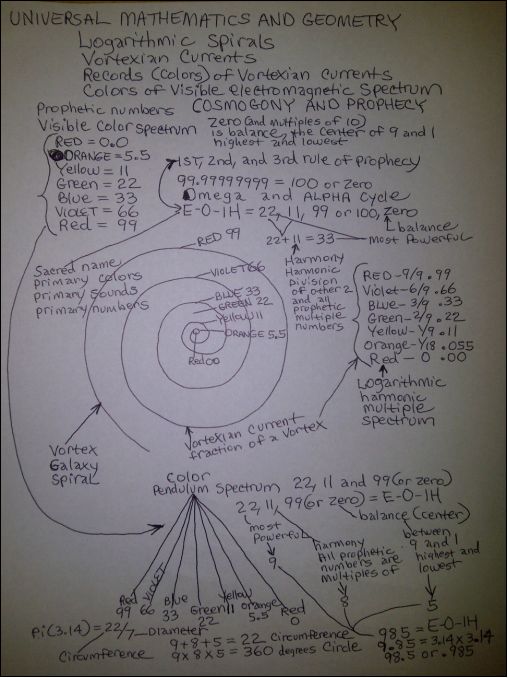 UNIVERSAL MATHEMATICS AND GEOMETRY
Logarithmic Spirals
Vortexian Currents
Records (Colors) of Vortexian Currents
Colors of Visible Electromagnetic Spectrum
Prophetic numbers COSMOGONY AND PROPHECY
Visible Color Spectrum
RED = 0.0
ORANGE = 5.5
Yellow = 11
Green = 22
Blue = 33
VIOLET = 66
Red = 99
Zero (and multiples of 10)
is balance, the center of 9 and 1
highest and lowest
1ST, 2nd, and 3rd rule of prophecy
99.99999999 = 100 or Zero
Omega and ALPHA Cycle
E-O-IH = 22, 11, 99 or 100, Zero
balance
22+11 = 33
most Powerful
Sacred name
primary colors
primary sounds
primary numbers
RED 99
VIOLET 66
BLUE 33
GREEN 22
Yellow 11
ORANGE 5.5
Red 00
Harmony
Harmonic
division
of other 2
and all
prophetic
multiple
numbers
RED-9/9 .99
Violet-6/9 .66
Blue-3/9 .33
Green-2/9 .22
Yellow-1/9 .11
Orange-1/18 .055
Red-0 .00
Logarithmic
harmonic
multiple
spectrum
Vortex
Galaxy
Spiral
Vortexian Current
fraction of a vortex
Color
Pendulum Spectrum, 22, 11 and 99 (or zero)
22, 11, 99 (or zero) = E-O-IH
balance (center)
most
Powerful
9
harmony
All prophetic
numbers are
multiples of
8
between
9 and 1
highest and
lowest
5
Red
99
VIOLET
66
Blue
33
Green
22
Yellow
11
orange
5.5
Red
0
Pi (3.14) = 22/7 Diameter
Circumference
9+8+5 = 22 Circumference
9x8x5 = 360 degrees Circle
985 = E-O-IH
9.85 = 3.14 x 3.14
98.5 or .985